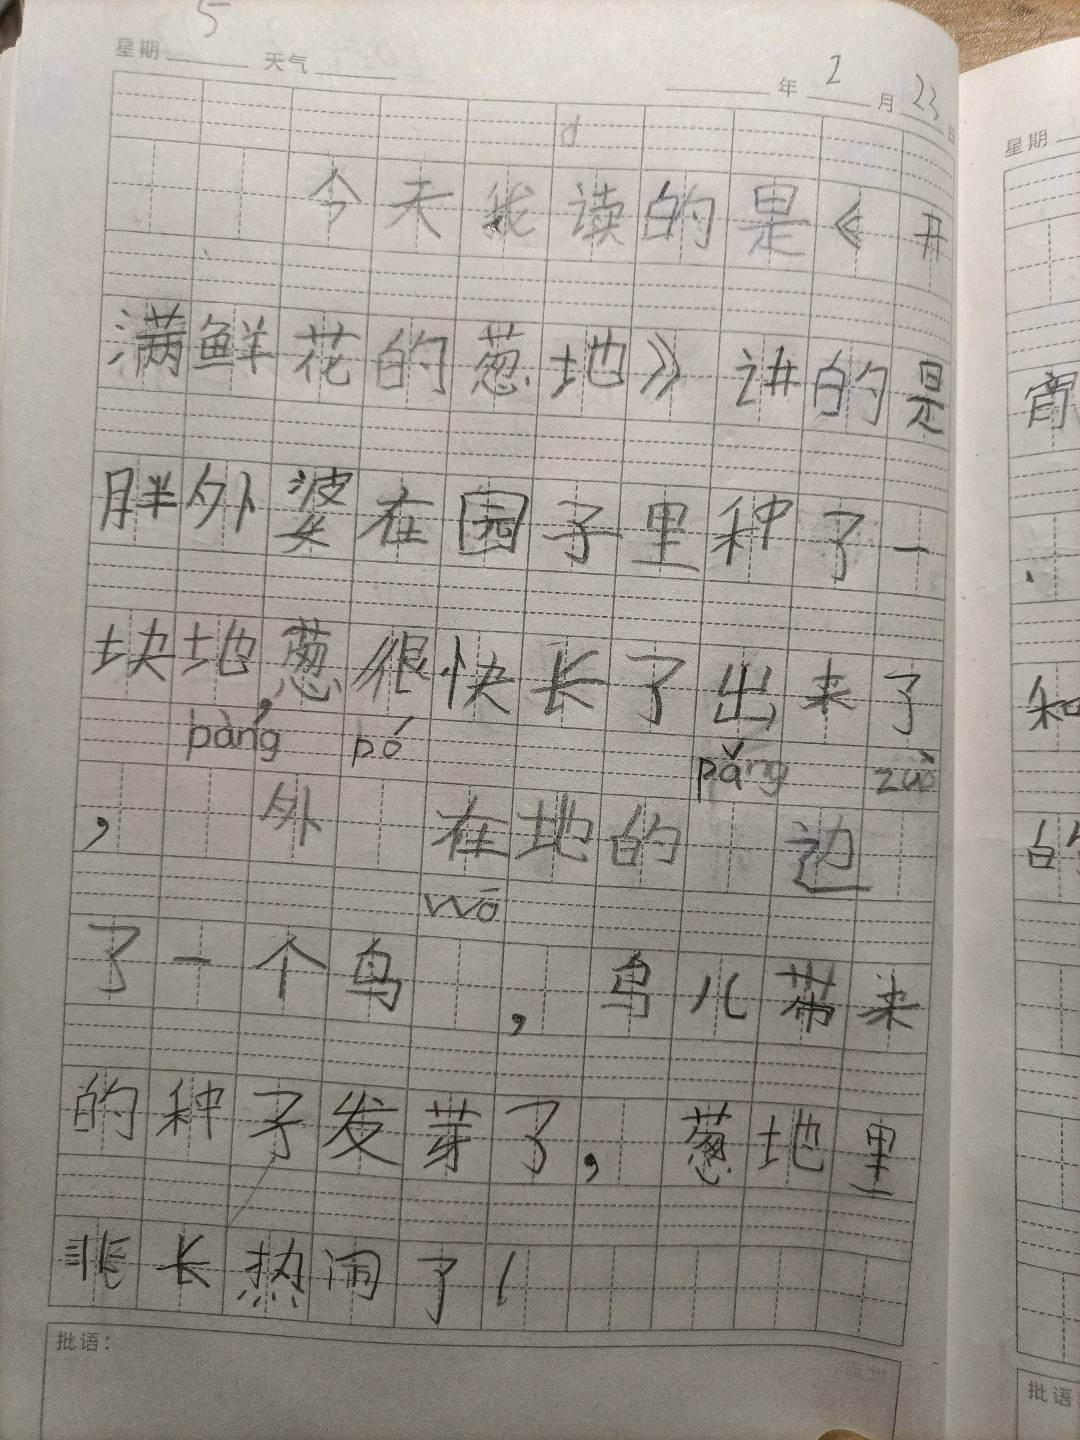 星期 5 天气 年 2 月 23 日
d
今天我读的是《开
满鲜花的葱地》讲的是
胖外婆在园子里种了一
块地,葱很快长了出来了
pàng pó pǎng zuò
,外 在地的 边
wō
了一个鸟 ,鸟儿带来
的种子发芽了,葱地里
非长热闹了!
批语:
星期
宵
、
知
的
批语